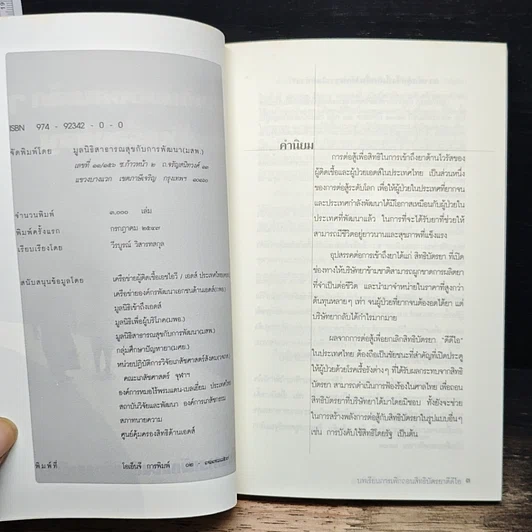 ISBN 974 - 92342 - 0 - 0
จัดพิมพ์โดย มูลนิธิสาธารณสุขกับการพัฒนา(มสพ.)
แขวงบางแวก เขตภาษีเจริญ กรุงเทพฯ ๑๐๑๖๐
จำนวนพิมพ์ ๓,๐๐๐ เล่ม
พิมพ์ครั้งแรก กรกฎาคม ๒๕๔๗
เรียบเรียงโดย วีรบูรณ์ วิสารทสกุล
สนับสนุนข้อมูลโดย เครือข่ายผู้ติดเชื้อเอชไอวี / เอดส์ ประเทศไทย
เครือข่ายองค์กรพัฒนาเอกชนด้านเอดส์
มูลนิธิเข้าถึงเอดส์
มูลนิธิเพื่อผู้บริโภค(มพอ.)
มูลนิธิสาธารณสุขกับการพัฒนา(มสพ.)
กลุ่มศึกษาปัญหายา(มศย.)
หน่วยปฏิบัติการวิจัยเภสัชศาสตร์สังคม
คณะเภสัชศาสตร์ จุฬาฯ
องค์การหมอไร้พรมแดน-เบลเยี่ยม ประเทศไทย
สถาบันวิจัยและพัฒนา องค์การเภสัชกรรม
สภาทนายความ
ศูนย์คุ้มครองสิทธิด้านเอดส์
พิมพ์ที่ ไอเอ็นจี การพิมพ์
คำนิยม
การต่อสู้เพื่อสิทธิในการเข้าถึงยาต้านไวรัสของ
ผู้ติดเชื้อและผู้ป่วยเอดส์ในประเทศไทย เป็นส่วนหนึ่ง
ของการต่อสู้ระดับโลก เพื่อให้ผู้ป่วยในประเทศที่ยากจน
และประเทศกำลังพัฒนาได้มีโอกาสเหมือนกับผู้ป่วยใน
ประเทศที่พัฒนาแล้ว ในการที่จะได้รับยาที่ช่วยให้
สามารถมีชีวิตอยู่ยาวนานและสุขภาพที่แข็งแรง
อุปสรรคต่อการเข้าถึงยาได้แก่ สิทธิบัตรยา ที่เปิด
ช่องทางให้บริษัทยาข้ามชาติสามารถผูกขาดการผลิตยา
ที่จำเป็นต่อชีวิต และนำมาจำหน่ายในราคาที่สูงกว่า
ต้นทุนหลายๆ เท่า จนผู้ป่วยที่ยากจนต้องอดได้ยา แต่
บริษัทยากลับได้กำไรมากมาย
ผลจากการต่อสู้เพื่อยกเลิกสิทธิบัตรยา "ดีดีไอ"
ในประเทศไทย ต้องถือเป็นชัยชนะที่สำคัญที่เปิดประตู
ให้ผู้ป่วยด้วยโรคเรื้อรังต่างๆ ที่ได้รับผลกระทบจากสิทธิ
บัตรยา สามารถดำเนินการฟ้องร้องในศาลไทย เพื่อถอน
สิทธิบัตรยาที่บริษัทยาได้มาโดยมิชอบ ทั้งยังจะช่วยใน
การสร้างพลังการต่อสู้กับสิทธิบัตรยาในรูปแบบอื่นๆ
เช่น การบังคับใช้สิทธิโดยรัฐ เป็นต้น
บทเรียนการเพิกถอนสิทธิบัตรยาดีดีไอ